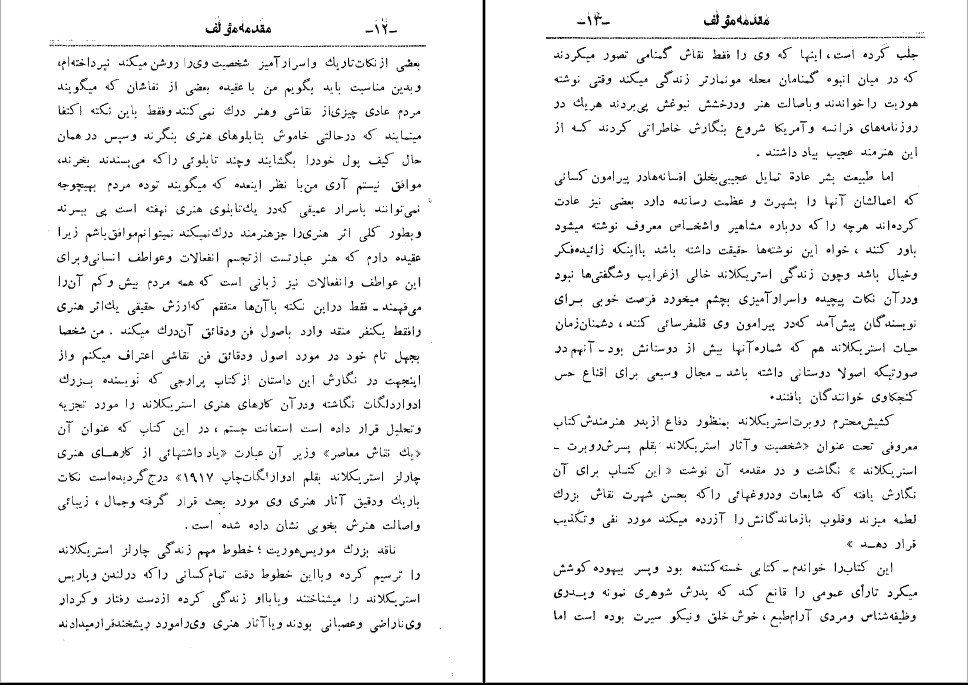 -۱۲- مقدمه مؤلف
بعضی از نکات تاریك و اسرار آمیز شخصیت وی را روشن میکند نپرداخته‌ام،
وبدین مناسبت باید بگویم من با عقیده بعضی از نقاشان که میگویند
مردم عادی چیزی از نقاشی وهنر درك نمی‌کنند وفقط باین نکته اکتفا
مینمایند که درحالتی خاموش بتابلوهای هنری بنگرند وسپس در همان
حال کیف پول خودرا بگشایند وچند تابلوئی راکه می‌پسندند بخرند،
موافق نیستم آری من با نظر اینعده که میگویند توده مردم بهیچوجه
نمی‌توانند باسرار عمیقی که در یك تابلوی هنری نهفته است پی ببرند
وبطور کلی اثر هنری را جز هنرمند درك نمیکند نمیتوانم موافق باشم زیرا
عقیده دارم که هنر عبارتست از تجسم انفعالات وعواطف انسانی وبرای
این عواطف وانفعالات نیز زبانی است که همه مردم بیش وکم آن را
می‌فهمند ـ فقط دراین نکته باآن‌ها متفقم که ارزش حقیقی یك اثر هنری
رافقط یکنفر منقد وارد باصول فن ودقائق آن درك میکند . من شخصا
بجهل تام خود در مورد اصول ودقائق فن نقاشی اعتراف میکنم واز
اینجهت در نگارش این داستان از کتاب پرارجی که نویسنده بــزرك
ادوارد لگات نگاشته ودرآن کارهای هنری استریکلاند را مورد تجزیه
وتحلیل قرار داده است استعانت جستم ، در این کتاب که عنوان آن
«یك نقاش معاصر» وزیر آن عبارت «یاد داشتهائی از کارهــای هنری
چارلز استریکلاند بقلم ادوارد لگات چاپ ۱۹۱۷» درج گردیده است نکات
باریك ودقیق آثار هنری وی مورد بحث قرار گرفته وجمال ، زیبائی
واصالت هنرش بخوبی نشان داده شده است .
ناقد بزرك موریس هوریت ؛ خطوط مهم زندگی چارلز استریکلاند
را ترسیم کرده وبااین خطوط دقت تمام کسانی راکه درلندن وپاریس
استریکلاند را میشناختند ویابااو زندگی کرده ازدست رفتار وکردار
وی ناراضی وعصبانی بودند ویاآثار هنری وی رامورد ریشخند قرار میدادند
-۱۳- مقدمه مؤلف
جلب کرده است، اینها که وی را فقط نقاش گمنامی تصور میکردند
که در میان انبوه گمنامان محله مونمارتر زندگی میکند وقتی نوشته
هوریت را خواندند وباصالت هنر ودرخشش نبوغش پی‌بردند هریك در
روزنامه‌های فرانسه وآمریکا شروع بنگارش خاطراتی کردند کــه از
این هنرمند عجیب بیاد داشتند .
اما طبیعت بشر عادة تمایل عجیبی بخلق افسانه‌ها در پیرامون کسانی
که اعمالشان آنها را بشهرت و عظمت رسانده دارد بعضی نیز عادت
کرده‌اند هرچه را که درباره مشاهیر واشخــاص معروف نوشته میشود
باور کنند ، خواه این نوشته‌ها حقیقت داشته باشد بااینکه زائیده فکر
وخیال باشد وچون زندگی استریکلاند خالی از غرایب وشگفتی‌ها نبود
ودرآن نکات پیچیده واسرارآمیزی بچشم میخورد فرصت خوبی بــرای
نویسندگان پیش آمد که در پیرامون وی قلمفرسائی کنند ، دشمنان زمان
حیات استریکلاند هم که شماره آنها بیش از دوستانش بود ـ آنهم در
صورتیکه اصولا دوستانی داشته باشد ـ مجال وسیعی برای اقناع حس
کنجکاوی خوانندگان یافتند.
کشیش محترم روبرت استریکلاند بمنظور دفاع از پدر هنرمندش کتاب
معروفی تحت عنوان «شخصیت وآثار استریکلاند بقلم پسرش روبرت ـ
استریکلاند » نگاشت و در مقدمه آن نوشت « این کتــاب برای آن
نگارش یافته که شایعات ودروغهائی راکه بحسن شهرت نقاش بزرك
لطمه میزند وقلوب بازماندگانش را آزرده میکند مورد نفی وتکذیب
قرار دهــد »
این کتاب را خواندم ـ کتابی خسته کننده بود وپسر بیهوده کوشش
میکرد تارأی عمومی را قانع کند که پدرش شوهری نمونه وپــدری
وظیفه شناس ومردی آرام طبع ، خوش خلق ونیکو سیرت بوده است اما